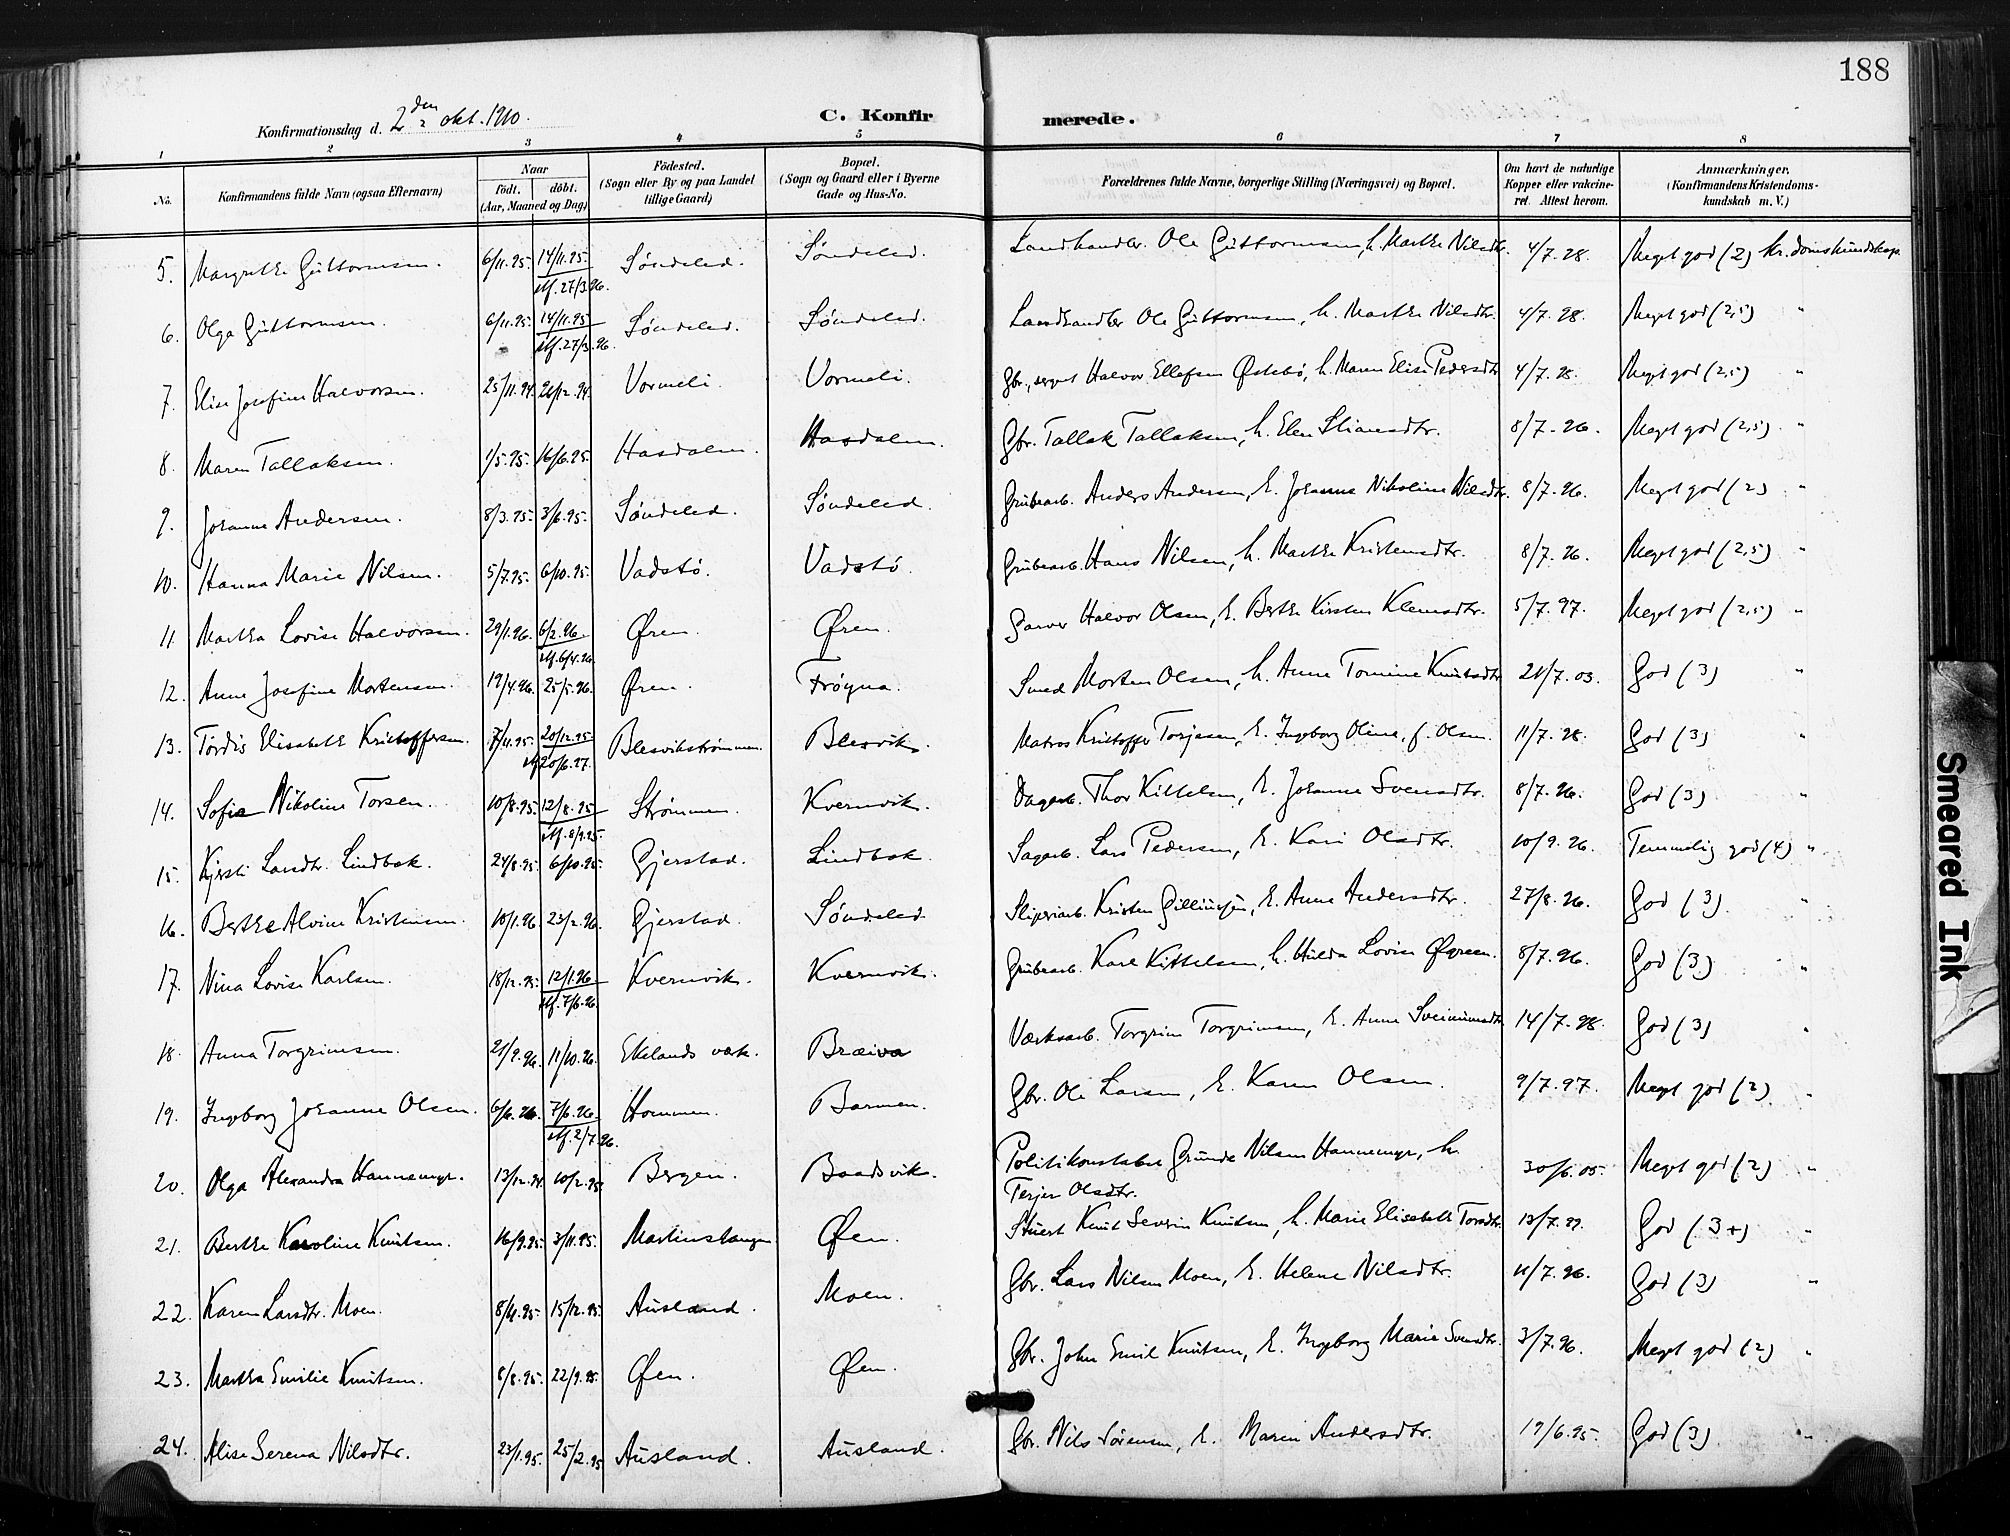 188
Konfirmationsdag d. 2den okt. 1910.
C. Konfirmerede.
1 2 3 4 5 6 7 8
No. Konfirmandens fulde Navn (ogsaa Efternavn) Naar født. døbt. (Aar, Maaned og Dag) Födested. (Sogn eller By og paa Landet tillige Gaard) Bopæl. (Sogn og Gaard eller i Byerne Gade og Hus-No. Forældrenes fulde Navne, borgerlige Stilling (Næringsvei) og Bopæl. Om havt de naturlige Kopper eller vakcineret. Attest herom. Anmærkninger. (Konfirmandens Kristendomskundskab m. V.)
5. Margrethe Guttormsen. 6/11.95. 14/11.95. stf. 27/3.96. Søndeled. Søndeled. Landhandler Ole Guttormsen, h. Marthe Nilsdtr. 4/7.98. Meget god (2) kr.domskundskap.
6. Olga Guttormsen. 6/11.95. 14/11.95 stf. 27/3.96. Søndeled. Søndeled. Landhandler Ole Guttormsen, h. Marthe Nilsdtr. 4/7.98. Meget god (2,5) "
7. Elise Josefine Halvorsen. 25/11.94. 26/12.94. Vormeli. Vormeli. Gbr., Halvor Ellefsen Østebø, h. Maren Elise Pedersdtr 4/7.98. Meget god (2,5) "
8. Maren Tallaksen. 1/5.95. 16/6.95. Hasdalen. Hasdalen. Gbr. Tallak Tallaksen, h. Elen Stiansdtr. 8/7.96. Meget god (2,5) "
9. Johanne Andersen. 8/3.95. 3/6.95. Søndeled. Søndeled. Grubearb. Anders Andersen, h. Johanne Nikoline Nilsdtr. 8/7.96. Meget god (2) "
10. Hanna Marie Nilsen. 5/7.95. 6/10.95. Vadstø. Vadstø. Grubearb. Hans Nilsen, h. Marthe Kristensdtr. 8/7.96. Meget god (2,5) "
11 Martha Lovise Halvorsen. 29/1.96. 6/2.96. stf. 6/4.96. Øren. Øren. Garver Halvor Olsen, h. Berthe Kirsten Klemsdtr. 5/7.97. Meget god (2,5) "
12. Anne Josefine Mortensen. 19/4.96. 25/5.96. Øren. Frøyna. Smed Morten Olsen, h. Anne Tomine Knutsdtr 21/7.03. God (3) "
13. Tordis Elisabeth Kristoffersen. 7/11.95. 20/12.95. stf 20/6.97. Blesvikstrømmen. Blesvik. Matros Kristoffer Torjesen, h. Ingeborg Oline, f. Olsen. 11/7.98. God (3) "
14. Sofie Nikoline Torsen. 10/8.95. 12/8.95 stf. 8/9.95. Strømmen. Kvernvik. Dagarb. Thor Kittelsen, h. Johanne Svensdtr. 8/7.96. God (3) "
15. Kjersti Larsdtr. Lindbak. 24/8.95. 6/10.95. Gjerstad. Lindbak. Sagarb. Lars Pedersen, h. Kari Olsdtr. 10/9.96. Temmelig god (4) "
16. Berthe Alvine Kristensen. 10/1.96. 23/2.96. Gjerstad. Søndeled Sliperiarb. Kristen h. Anne Andersdtr. 27/8.96. God (3). "
17. Nina Lovise Karlsen. 18/12.95. 12/1.96 stf. 7/6.96. Kvernvik. Kvernvik. Grubearb. Karl Kittelsen, h. Hulda Lovise Øygreen. 8/7.96. God (3) "
18. Anna Torgrimsen. 21/9.96. 11/10.96. Ekelands værk. Bræiva Værksarb. Torgrim Torgrimsen, h. Anne 14/7.98. God (3) "
19. Ingeborg Johanne Olsen. 6/6.96. 7/6.96. stf. 2/7.96. Hommen. Barmen. Gbr. Ole Larsen, h. Karen Olsen. 9/7.97. Meget god (2) "
20. Olga Alexandra Hannemyr. 13/12.94. 10/2.95. Bergen. Baadsvik. Politikonstabel Grunde Nilsen Hannemyr, h.
Terjer Olsdtr. 30/6.05. Meget god (2) "
21. Berthe Karoline Knutsen. 16/9.95. 3/11.95. Martinstangen Øen. Stuert Knut Severin Knutsen, h. Marie Elisabeth Torsdtr. 13/7.99. God (3+) "
22. Karen Larsdtr. Moen. 8/11.95. 15/12.95. Ausland. Moen. Gbr. Lars Nilsen Moen, h. Helene Nilsdtr. 11/7.96. God (3) "
23. Martha Emilie Knutsen. 8/8.95. 22/9.95. Øen. Øen. Gbr. John Emil Knutsen, h. Ingeborg Marie Svendtr. 3/7.96. Meget god (2) "
24. Alise Serena Nilsdtr. 23/1.95. 25/2.95 Ausland. Ausland. Gbr. Nils Sørensen, h. Maren Andersdtr. 19/6.95. God (3) "
Smeared Ink